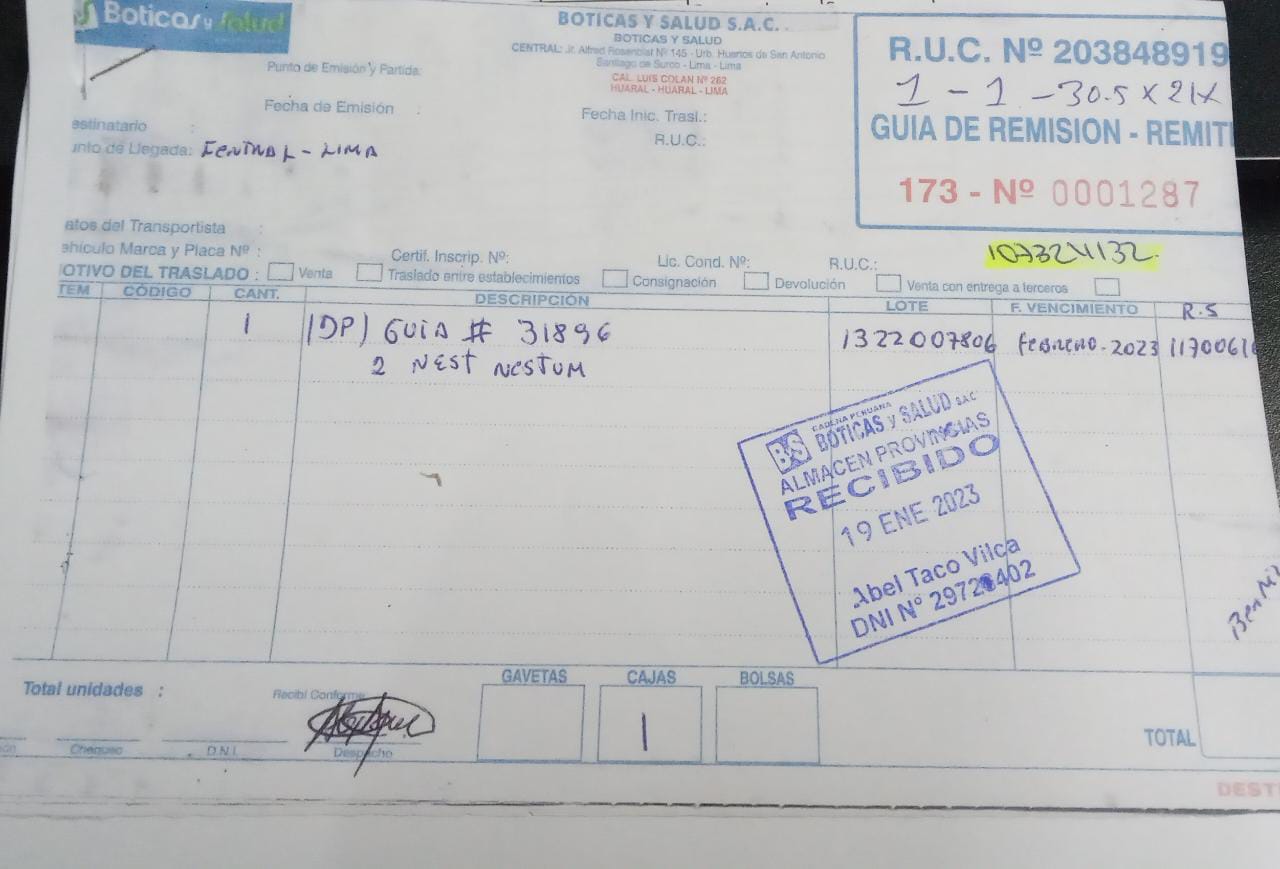 Boticas y Salud
BOTICAS Y SALUD S.A.C.
BOTICAS Y SALUD
CENTRAL: Jr. Alfred Rosenblat Nº 145 - Urb. Huertos de San Antonio
Santiago de Surco - Lima - Lima
CAL. LUIS COLAN Nº 262
HUARAL - HUARAL - LIMA
R.U.C. Nº 203848919
1 - 1 - 30.5 X 21X
GUIA DE REMISION - REMIT
173 - Nº 0001287
Punto de Emisión y Partida:
Fecha de Emisión :
Fecha Inic. Trasl.:
estinatario :
R.U.C.:
nto de Llegada: CENTRAL - LIMA
atos del Transportista :
ehículo Marca y Placa Nº :
Certif. Inscrip. Nº:
Lic. Cond. Nº:
R.U.C.:
1073324132.
OTIVO DEL TRASLADO : Venta Traslado entre establecimientos Consignación Devolución Venta con entrega a terceros
TEM CÓDIGO CANT. DESCRIPCIÓN LOTE F. VENCIMIENTO R.S
1 (DP) GUIA # 31896 1322007806 FEBRERO-2023 1170061
2 NEST NESTUM
CADENA PERUANA
BS BOTICAS y SALUD S.A.C
ALMACEN PROVINCIAS
RECIBIDO
19 ENE 2023
Abel Taco Vilca
DNI Nº 2972 402
Total unidades :
Recibí Conforme
GAVETAS CAJAS BOLSAS
1
TOTAL
Chequeo D.N.I. Despacho
DEST